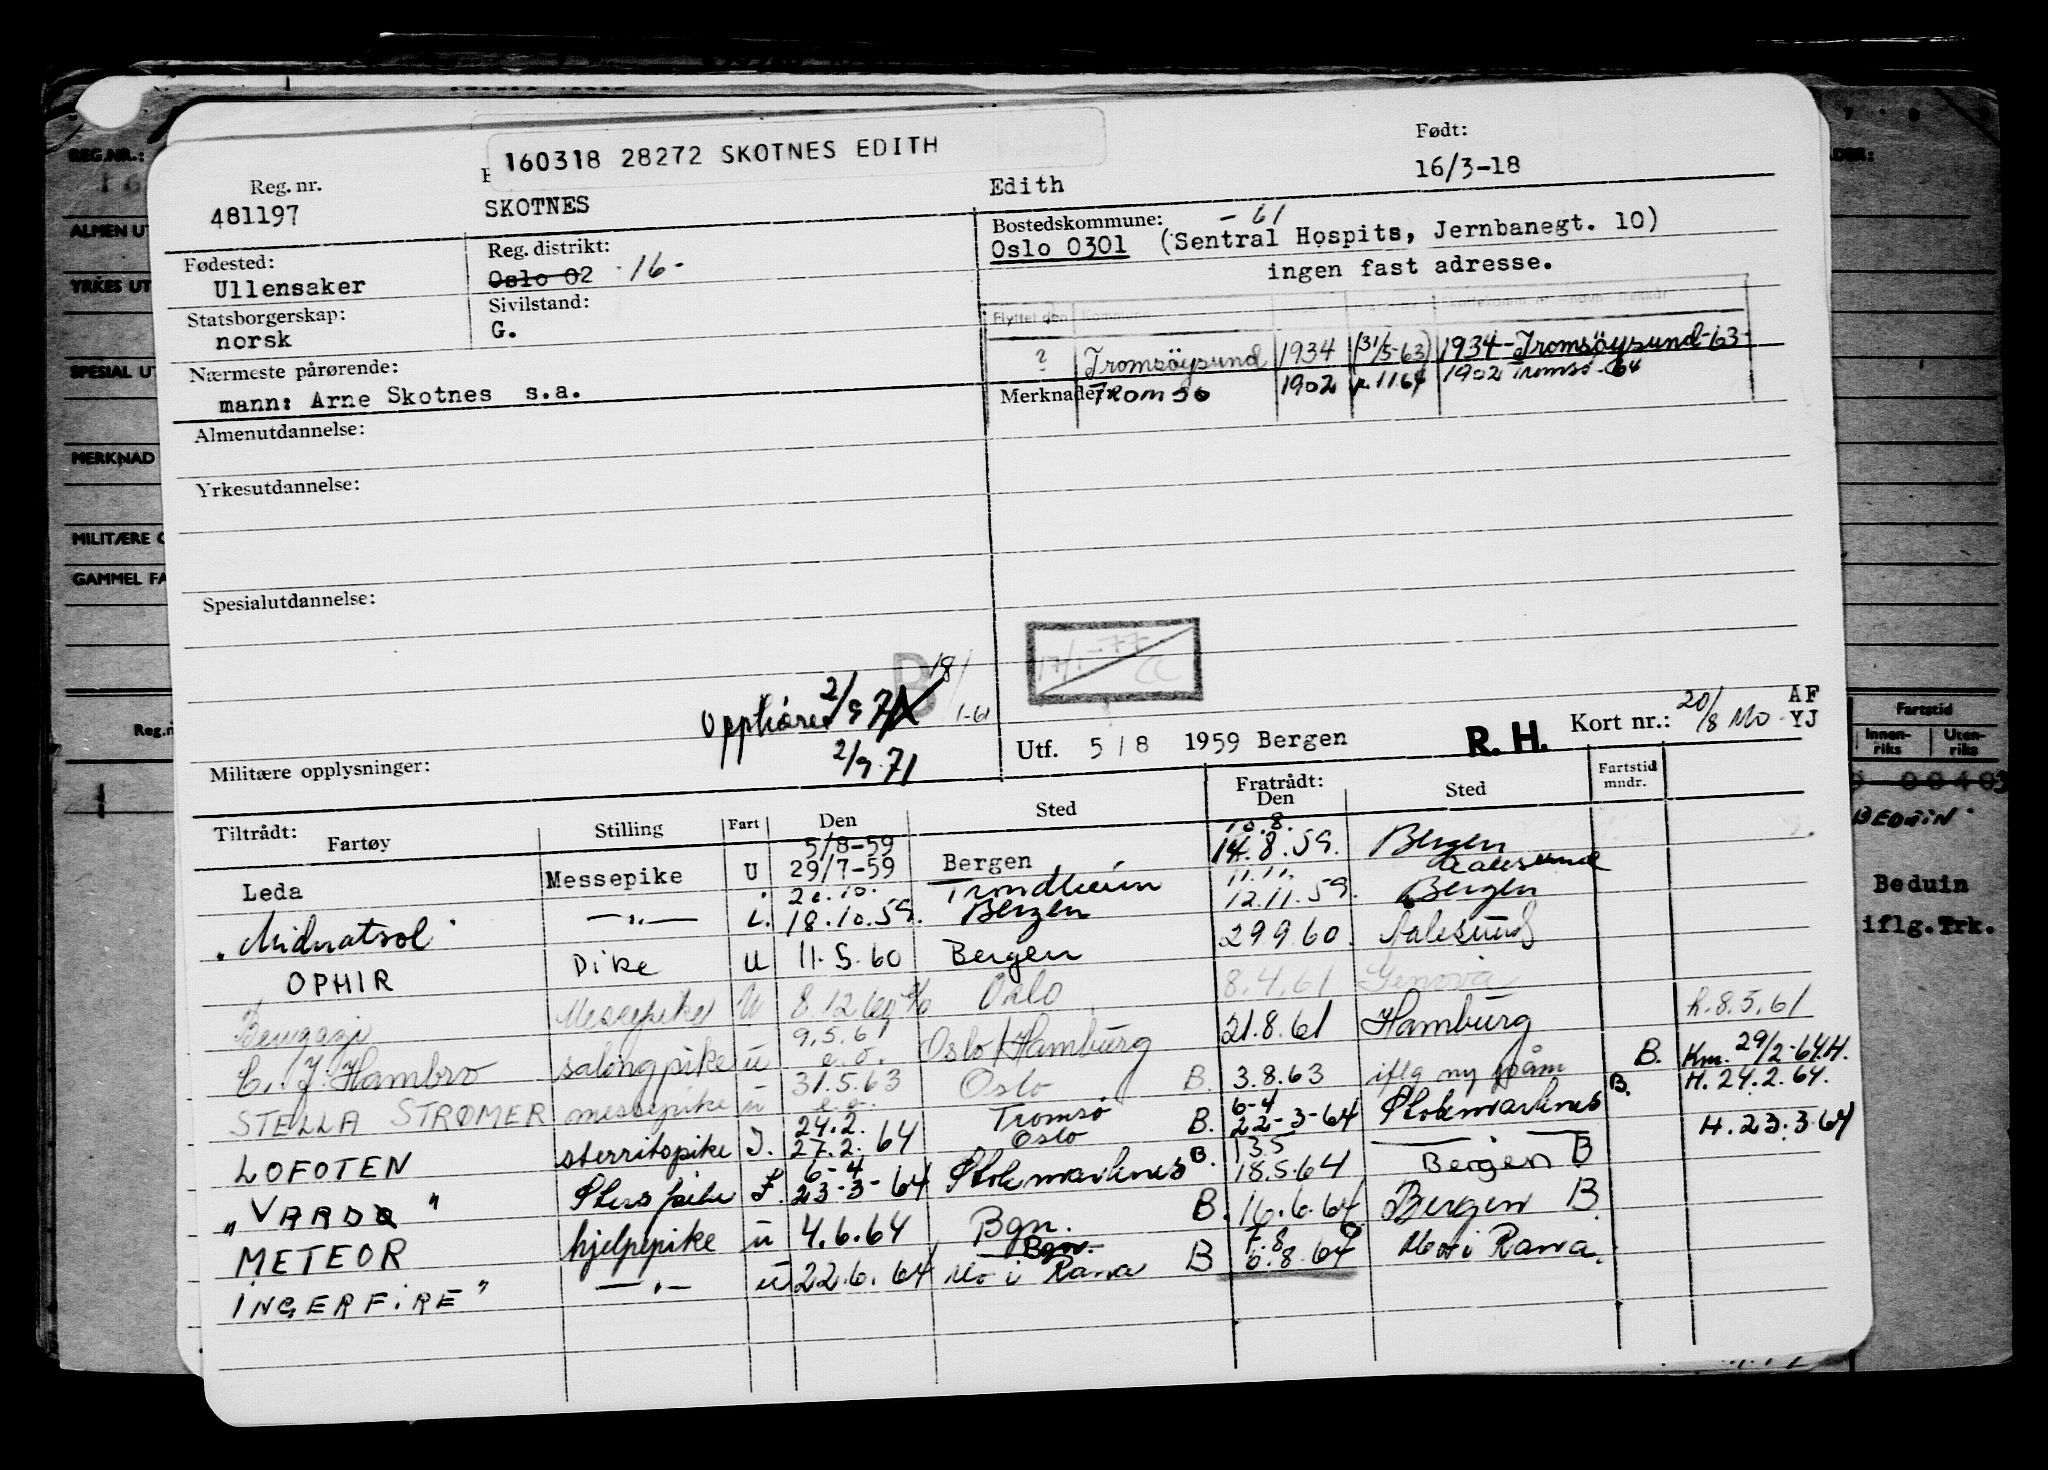 160318 28272 SKOTNES EDITH
Født:
16/3-18
Reg. nr.
481197
SKOTNES
Edith
Fødested:
Ullensaker
Reg. distrikt:
Oslo 02 -16-
Bostedskommune: -61
Oslo 0301 (Sentral Hospits, Jernbanegt. 10)
ingen fast adresse.
Statsborgerskap:
norsk
Sivilstand:
G.
Flyttet den Kommune
? Tromsøysund 1934 (31/5-63) 1934-Tromsøysund-63-
Nærmeste pårørende:
mann: Arne Skotnes s.a.
Merknader: Tromsø 1902 1164 1902 Tromsø-64
Almenutdannelse:
Yrkesutdannelse:
Spesialutdannelse:
17/1-77
B 18/1-61
Opphører 2/9 71
2/9.71
Militære opplysninger:
Utf. 5/8 1959 Bergen
R. H.
Kort nr.: 20/8 MO AF YJ
Tiltrådt: Fartøy Stilling Fart Den Sted Fratrådt: Den Sted Fartstid mndr.
5/8-59 10.8.
Leda Messepike U 29/7-59 Bergen 14.8.59. Bergen
20.10. Trondheim 11.11. Aalesund
"Midnatsol" —"— 18.10.59. Bergen 12.11.59. Bergen
OPHIR Dike U 11.5.60 Bergen 29.9.60. Aalesund
Benggazi Messepike U 8.12.60 Oslo 8.4.61 Genova
9.5.61
C. J. Hambro salongpike u e.o. Oslo/Hamburg 21.8.61 Hamburg h.8.5.61
31.5.63
STELLA STRØMER messepike u e.o. Oslo B. 3.8.63 iflg ny påm B. Km. 29/2-64.H.
24.2. Tromsø 6-4
LOFOTEN sterritspike I. 27.2.64 Oslo B. 22-3-64 Stokmarknes B. H. 24.2.64.
6-4 13.5
"VARDØ" I. 23-3-64 Stokmarknes B. 18.5.64 Bergen B H.23.3.64
METEOR hjelpepike u 4.6.64 Bgn. B. 16.6.64 Bergen B.
Bgn. 7.8
INGERFIRE" —"— u 22.6.64 Mo i Rana B 6.8.64 Mo i Rana.
REG.NR.:
ALMEN UT
YRKES UT
SPESIAL UT
MERKNAD
MILITÆRE O
GAMMEL FA
Reg.n
Fartstid
Innen-riks Uten-riks
BEDUIN
Beduin
iflg.Trk.